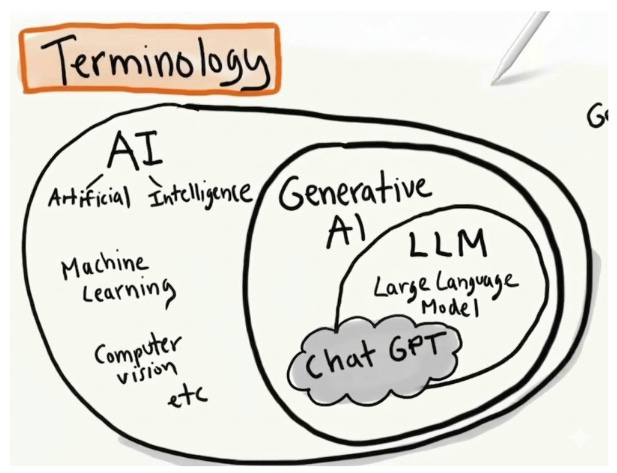 Terminology
AI
Artificial Intelligence
Machine
Learning
Computer
vision
etc
Generative
AI
LLM
Large Language
Model
Chat GPT